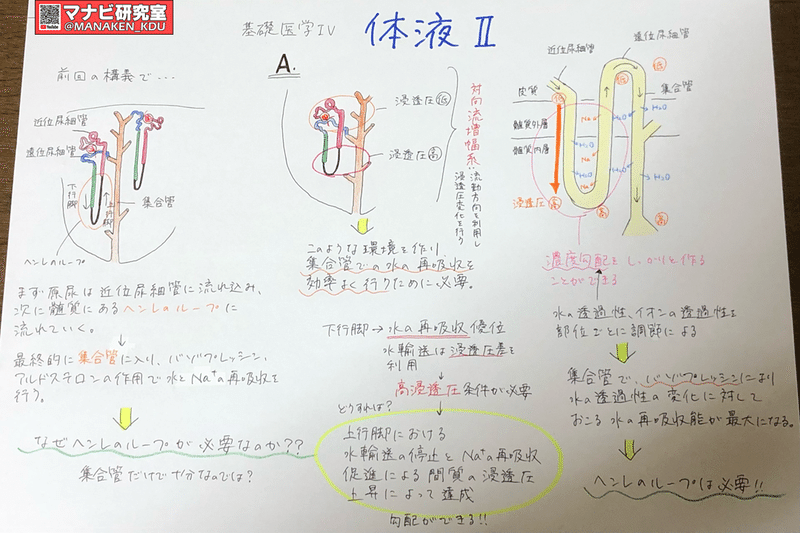 マナビ研究室
@MANAKEN_KDU
YouTube
基礎医学IV
体液 II
前回の構義で...
近位尿細管
遠位尿細管
下行脚
上行脚
集合管
ヘンレのループ
まず原尿は近位尿細管に流れ込み、
次に髄質にあるヘンレのループに
流れていく。
最終的に集合管に入り、バソプレッシン、
アルドステロンの作用で水とNa⁺の再吸収を
行う。
なぜヘンレのループが必要なのか??
集合管だけで十分なのでは?
A.
浸透圧 低
浸透圧 高
対向流増幅系
流動方向を利用し
浸透圧変化を行う
このような環境を作り、
集合管での水の再吸収を
効率よく行うために必要。
下行脚→水の再吸収優位
水輸送は浸透圧差を
利用
高浸透圧条件が必要
どうすれば?
上行脚における
水輸送の停止とNa⁺の再吸収
促進による間質の浸透圧
上昇によって達成
勾配ができる!!
近位尿細管
遠位尿細管
皮質
低
低
集合管
髄質外層
髄質内層
H₂O
H₂O
H₂O
H₂O
H₂O
H₂O
Na
Na
Na
浸透圧 高
高
高
濃度勾配をしっかりと作る
ことができる
水の透過性、イオンの透過性を
部位ごとに調節による
集合管で、バソプレッシンにより
水の透過性の変化に対して
おこる水の再吸収能が最大になる。
ヘンレのループは必要!!